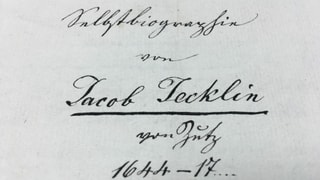 Selbstbiographie
von
Jacob Jecklin
von Zutz
1644 – 17....